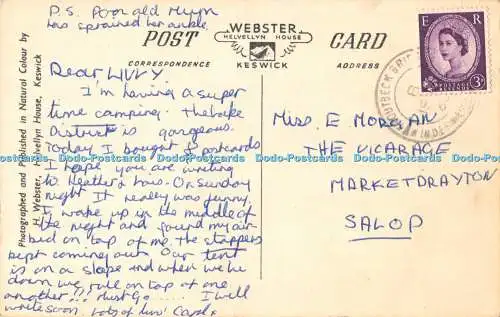 P.S. Poor old Mum
has sprained her ankle.
WEBSTER
HELVELLYN HOUSE
KESWICK
POST CARD
CORRESPONDENCE
ADDRESS
E R
POSTAGE
REVENUE
3D
Photographed and Published in Natural Colour by
H. Webster, Helvellyn House, Keswick
Dear
I'm having a super
time camping. The Lake
District is gorgeous.
Today I bought 8 postcards
I hope you are writing
to Heather & Lous. On Sunday
night it really was funny.
I woke up in the middle of
the night and found my air
bed on top of me. The stoppers
kept coming out. Our tent
is on a slope and when we lie
down we roll on top of one
another!!! Must go.... I will
write soon. Lots of luv Carol x
Miss E MORGAN
THE VICARAGE
MARKET DRAYTON
SALOP
Dado-Postcards Dado-Postcards Dado-Postcards Dado-Postcards